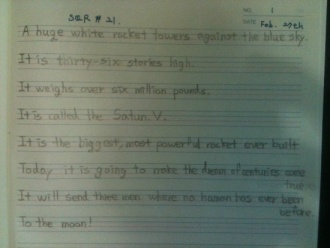 SER # 21.
NO. 1
DATE Feb. 27th
A huge white rocket towers against the blue sky.
It is thirty-six stories high.
It weighs over six million pounds.
It is called the Saturn V.
It is the biggest, most powerful rocket ever built
Today it is going to make the dream of centuries come
true
It will send three men where no human has ever been
before.
To the moon!